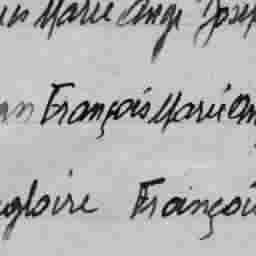 Marie Ange Joseph
François Marie
gloire François